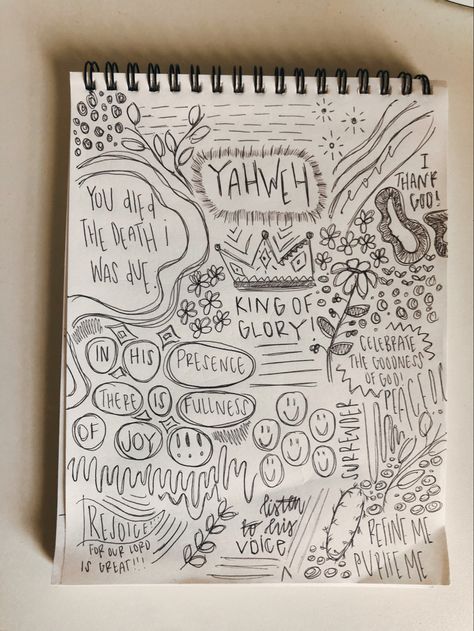 YAHWEH
I
THANK
GOD!
YOU DIED
THE DEATH I
WAS DUE.
KING OF
GLORY!
CELEBRATE
THE GOODNESS
OF GOD!
IN HIS PRESENCE
THERE IS FULLNESS
OF JOY !!!
SURRENDER
REJOICE!
FOR OUR LORD
IS GREAT!!!
listen
to his
VOICE
REFINE ME
ME